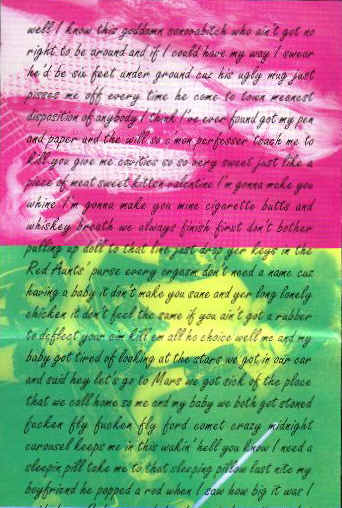 well I know this goddamn sonovabitch who ain't got no
right to be around and if I could have my way I swear
he'd be six feet under ground cuz his ugly mug just
pisses me off every time he come to town meanest
disposition of anybody I think I've ever found got my pen
and paper and the will so c'mon perfesser teach me to
kill you give me cavities so so very sweet just like a
piece of meat sweet kitten valentine I'm gonna make you
whine I'm gonna make you mine cigarette butts and
whiskey breath we always finish first don't bother
pulling up doll to that line just drop yer keys in the
Red Aunts' purse every orgasm don't need a name cus
having a baby it don't make you sane and yer long lonely
chicken it don't feel the same if you ain't got a rubber
to deflect your em kill em all no choice well me and my
baby got tired of looking at the stars we got in our car
and said hey let's go to Mars we got sick of the place
that we call home so me and my baby we both got stoned
fucken fly fucken fly ford comet crazy midnight
carousel keeps me in this wakin' hell you know I need a
sleepin pill take me to that sleeping pillow last nite my
boyfriend he popped a rod when I saw how big it was I